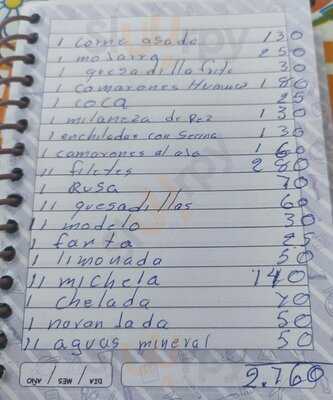 1 carne asada 130
1 mojarra 250
1 quesadilla frita 30
1 camarones Humuco 180
1 coca 25
1 milaneza de Rez 130
1 enchiladas con Secina 130
1 camarones al ajo 160
11 filetes 280
1 Rusa 70
11 quesadillas 60
11 modelo 30
1 fanta 25
11 limonada 50
11 michela 140
1 chelada 70
1 naranjada 50
11 aguas mineral 50
2.760
DIA / MES / AÑO